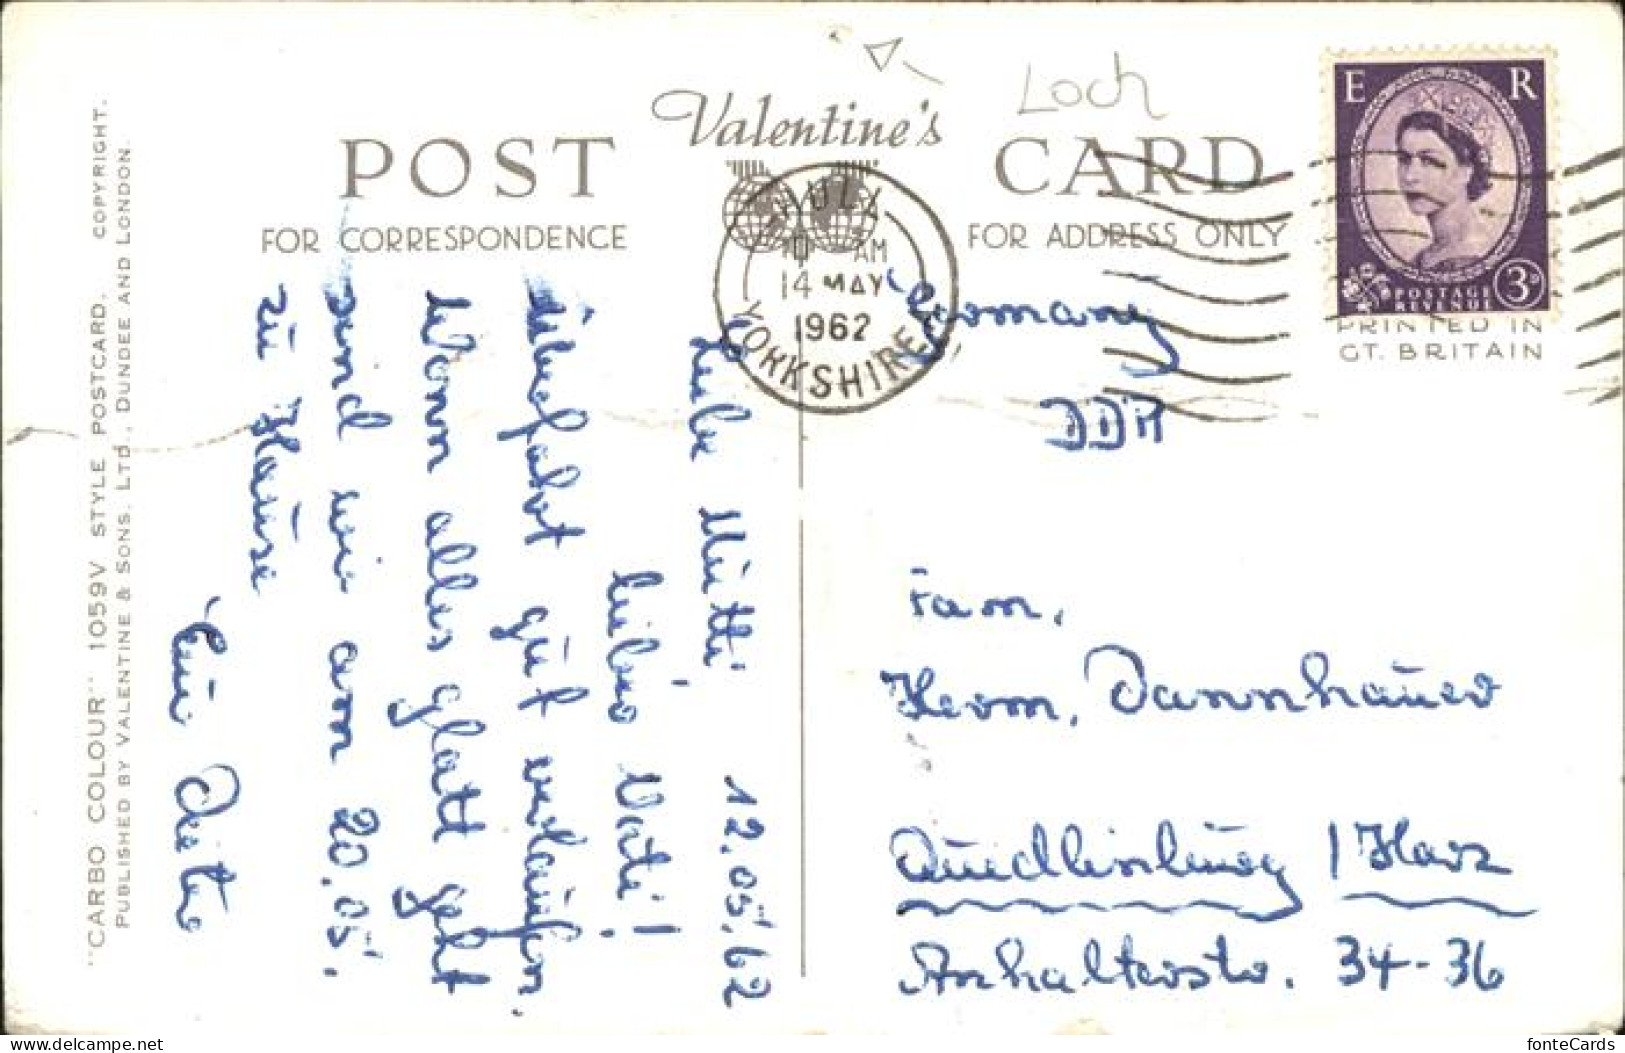 Loch
Valentine's
POST CARD
FOR CORRESPONDENCE
FOR ADDRESS ONLY
HULL
AM
14 MAY
1962
YORKSHIRE
E R
POSTAGE
REVENUE
3D
PRINTED IN
GT. BRITAIN
"CARBO COLOUR" 1059V STYLE POSTCARD. COPYRIGHT.
PUBLISHED BY VALENTINE & SONS, LTD., DUNDEE AND LONDON.
12.05.62
Liebe Mutti
lieber Vati!
Überfahrt gut verlaufen.
Wenn alles glatt geht
sind wir am 20.05.
zu Hause
Germany
DDR
Fam.
Herm. Dannhauer
Quedlinburg / Harz
Anhalterstr. 34-36
fonteCards